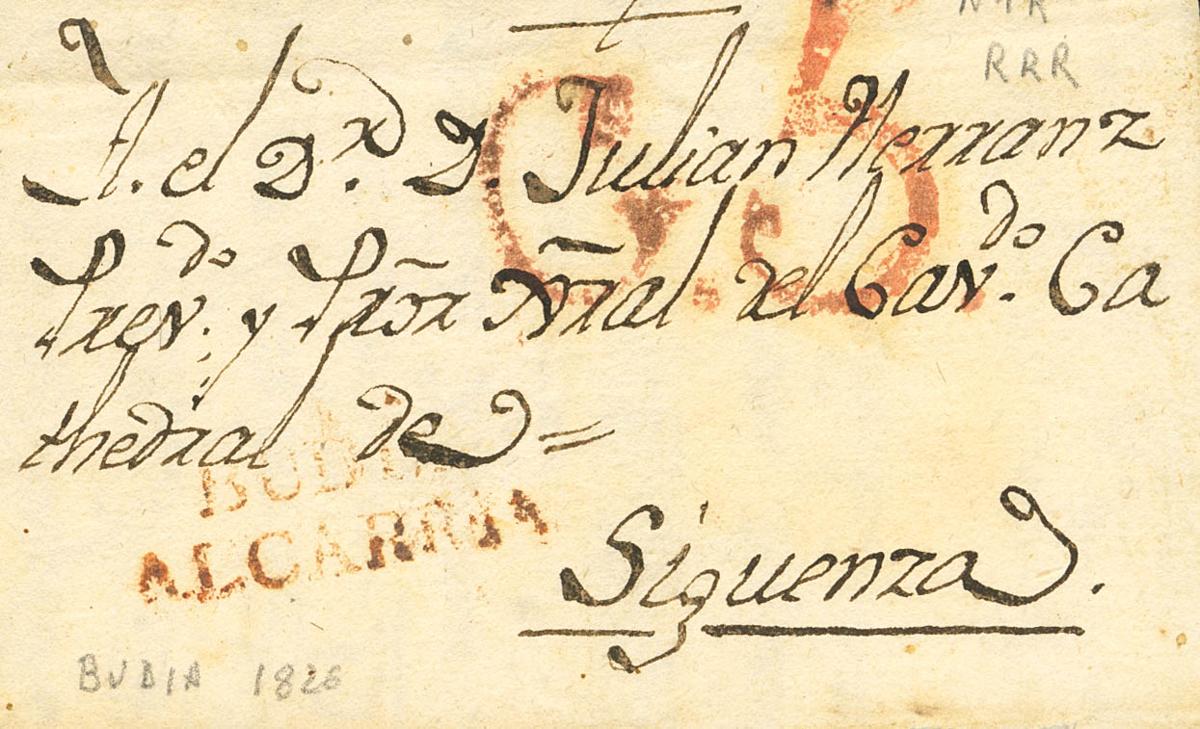 RRR
A. el D.r D. Julian Herranz
Prev.do y Pror Gral del Cav.do Ca
thedral de =
BUDIA
ALCARRIA
Siguenza.
BUDIA 1826